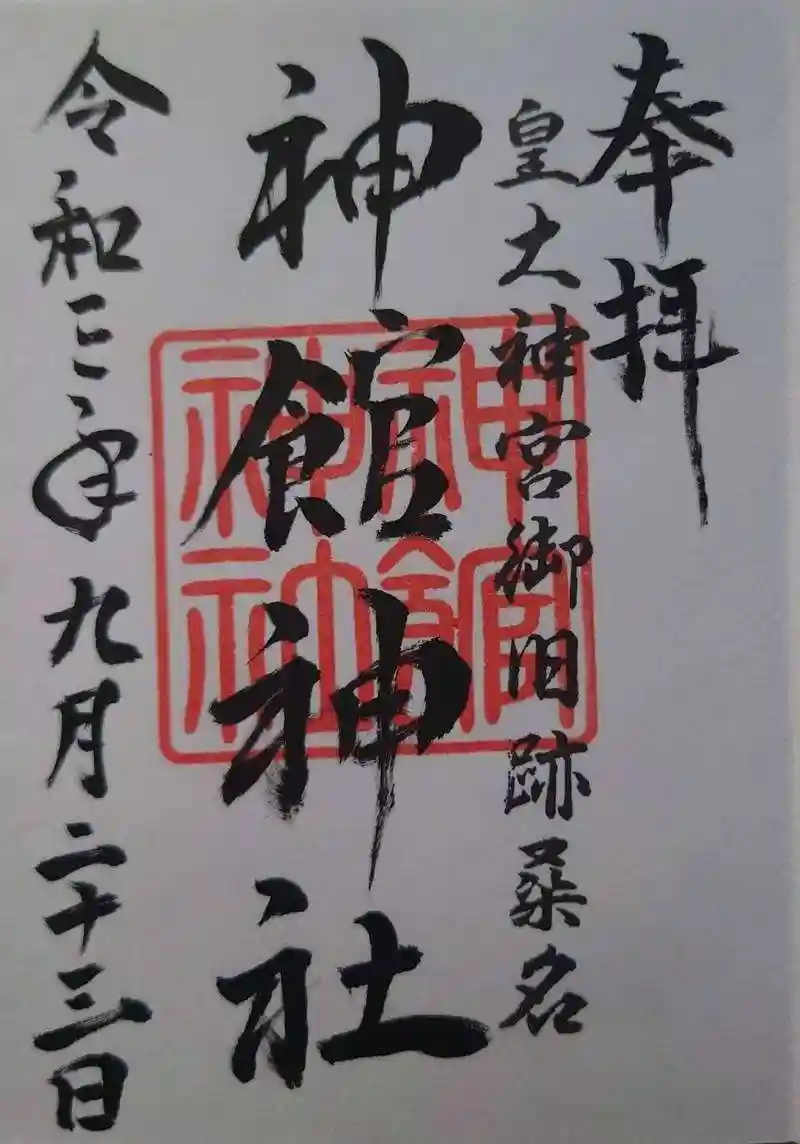 奉拝
皇大神宮御旧跡桑名
神館神社
神館神社
令和三年九月二十三日